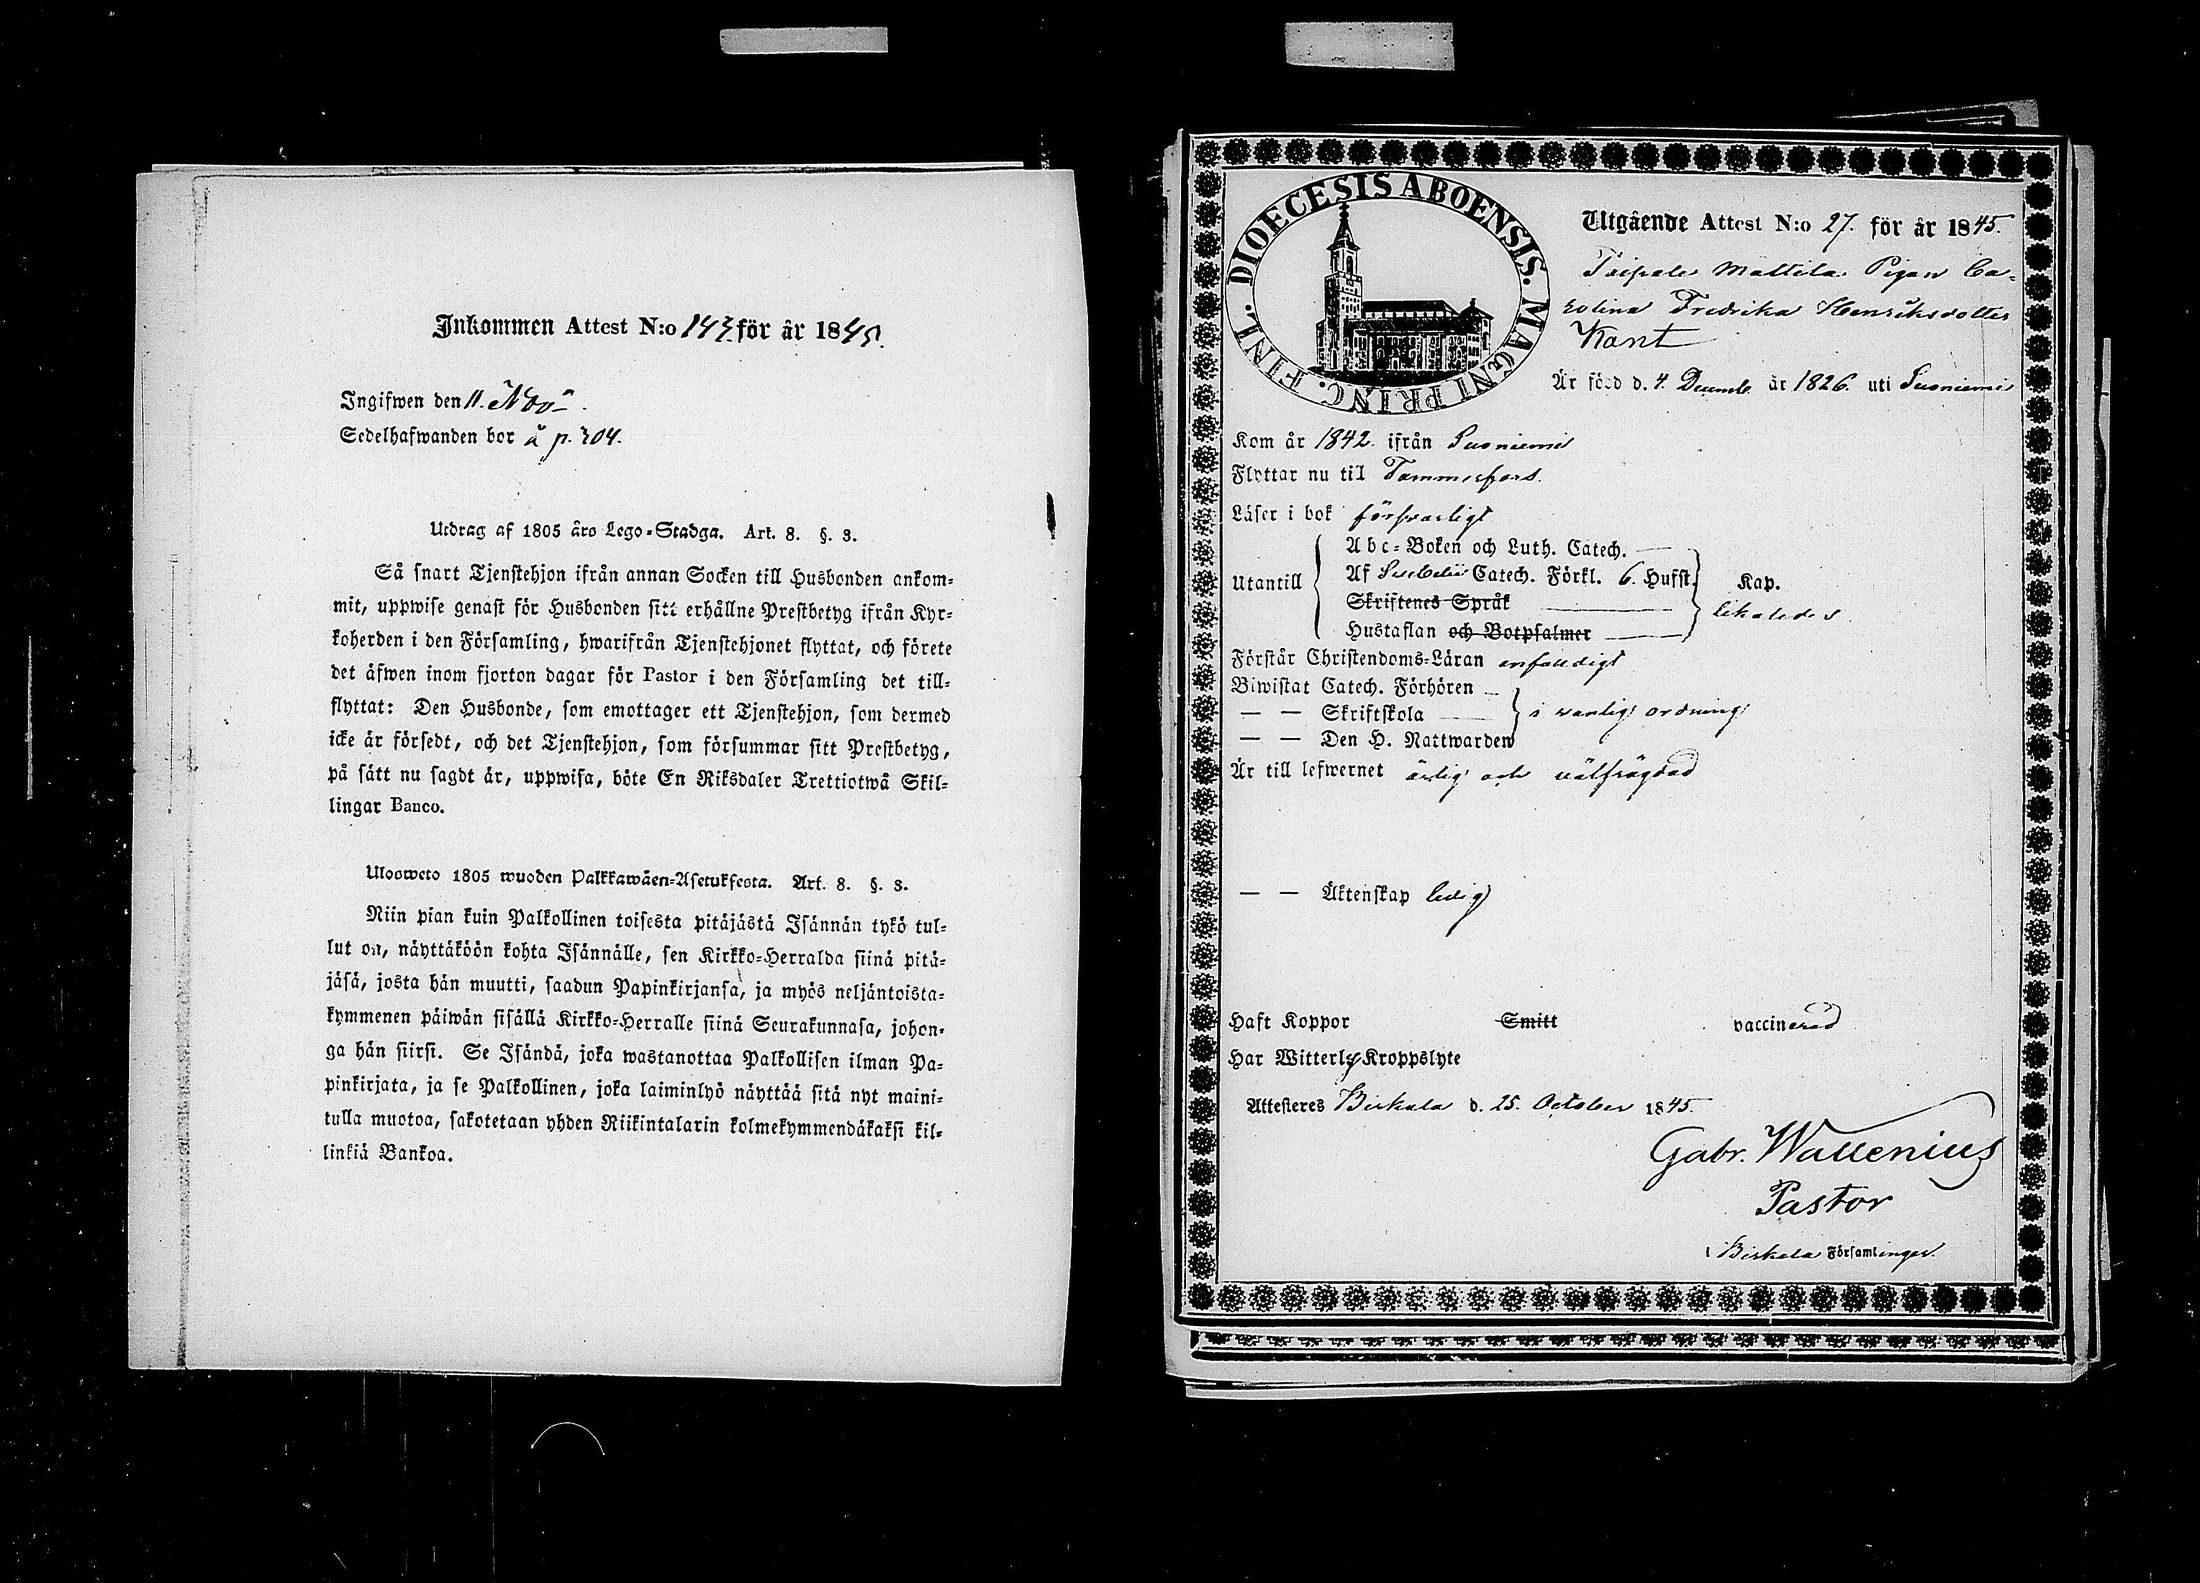 Inkommen Attest N:o 143 för år 1845.
Ingifwen den 11. Nov.
Sedelhafwanden bor å p. 304.
Utdrag af 1805 års Lego-Stadga. Art. 8. §. 3.
Så snart Tjenstehjon ifrån annan Socken till Husbonden ankom-
mit, uppwise genast för Husbonden sitt erhållne Prestbetyg ifrån Kyr-
koherden i den Församling, hwarifrån Tjenstehjonet flyttat, och förete
det äfwen inom fjorton dagar för Pastor i den Församling det till-
flyttat: Den Husbonde, som emottager ett Tjenstehjon, som dermed
icke är försedt, och det Tjenstehjon, som försummar sitt Prestbetyg,
på sätt nu sagdt är, uppwisa, böte En Riksdaler Trettiotwå Skil-
lingar Banco.
Ulosweto 1805 wuoden Palkkawäen-Asetuksesta. Art. 8. §. 3.
Niin pian kuin Palkollinen toisesta pitäjästä Isännän tykö tul-
lut on, näyttäköön kohta Isännälle, sen Kirkko-Herralda siinä pitä-
jäsä, josta hän muutti, saadun Papinkirjansa, ja myös neljäntoista-
kymmenen päiwän sisällä Kirkko-Herralle siinä Seurakunnasa, johon-
ga hän siirsi. Se Isändä, joka wastanottaa Palkollisen ilman Pa-
pinkirjata, ja se Palkollinen, joka laiminlyö näyttää sitä nyt maini-
tulla muotoa, sakotetaan yhden Riikintalarin kolmekymmendäkaksi kil-
linkiä Bankoa.
DIOECESIS ABOENSIS. MAGNI PRINC. FINL.
Utgående Attest N:o 27. för år 1845.
Mattila Pigan Ca-
rolina Fredrika Henriksdotter
Kant
Är född d. 4. Decemb. år 1826. uti Suoniemi
Kom år 1842. ifrån Suoniemi
Flyttar nu til Tammerfors.
Läser i bok försvarligt
Utantill
Abc-Boken och Luth. Catech.
Af Catech. Förkl. 6. Hufst. Kap.
Skriftenes Språk
likaledes
Hustaflan och Botpsalmer
Förstår Christendoms-Läran enfaldigt
Biwistat Catech. Förhören
— — Skriftskola i vanlig ordning
— — Den H. Nattwarden
Är till lefwernet ärlig och välfrägdad
— — Äktenskap ledig
Haft Koppor Smitt vaccinerad
Har Witterlig Kroppslyte
Attesteres Birkala d. 25. October 1845.
Gabr. Wallenius
Pastor
i Birkala Församlingar.